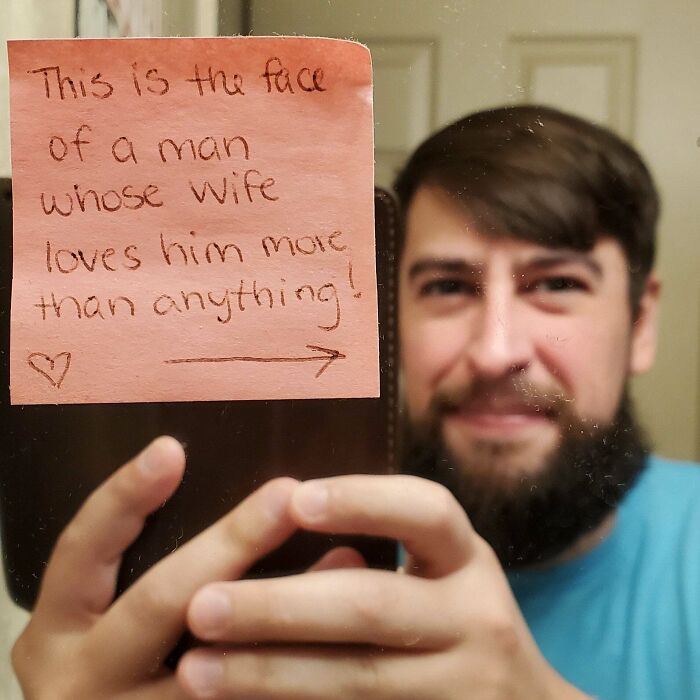 This is the face
of a man
whose wife
loves him more
than anything!